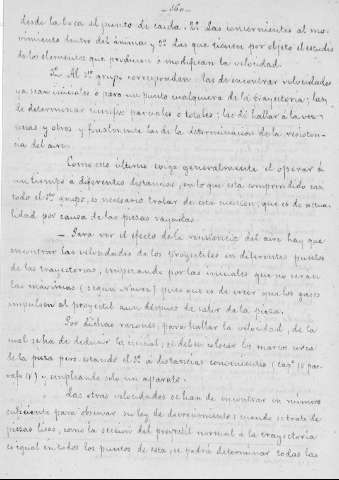 - 560 -
desde la boca al punto de caida. 2º Las concernientes al mo-
vimiento dentro del ánima y 3º Las que tienen por objeto el estudio
de los elementos que producen o modifican la velocidad.
Al 1er grupo corresponden: las de encontrar velocidades
ya sean iniciales o para un punto cualquiera de la trayectoria; las
de determinar tiempos parciales o totales; las de hallar alturas
y otros y finalmente las de la determinacion de la resisten-
cia del aire.
Como este último exige generalmente el operar á
un tiempo á diferentes distancias, en lo que esta comprendido casi
todo el 1er grupo, es necesario tratar de esta cuestion, que es de actua-
lidad por causa de las piezas rayadas.
- Para ver el efecto de la resistencia del aire hay que
encontrar las velocidades de los proyectiles en diferentes puntos
de las trayectorias, empezando por las iniciales que no seran
las maximas (segun Navez) pues que es de creer que los gases
impulsen al proyectil aun despues de salir de la pieza.
Por dichas razones, para hallar la velocidad, de la
cual se ha de deducir la inicial, se deben colocar los marcos cerca
de la pieza pero estando el 1º á distancia conveniente (cap. 1º par-
rafo) y empleando solo un aparato.
Las otras velocidades se han de encontrar en número
suficiente para observar su ley de decrecimiento; cuando se trate de
piezas lisas, como la seccion del proyectil normal a la trayectoria
es igual en todos los puntos de esta, se podrá determinar todas las